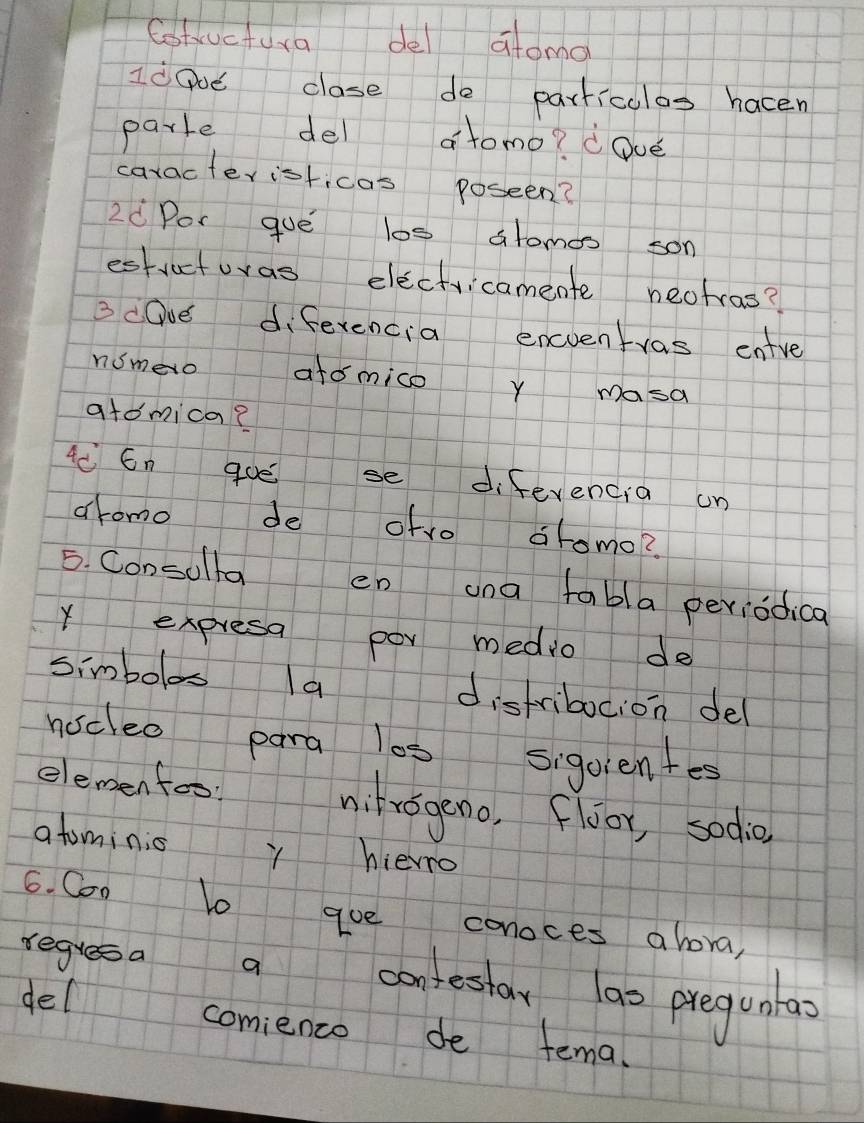 Estructura del átomo
1¿Qué clase de particulas hacen
parte del átomo? ¿Qué
caracteristicas poseen?
2¿Por qué los átomos son
estructuras eléctricamente neutras?
3¿Qué diferencia encuentras entre
número atómico y masa
atómica?
4¿En qué se diferencia un
átomo de otro átomo?
5. Consulta en una tabla periódica
y expresa por medio de
símbolos la distribución del
núcleo para los siguientes
elementos: nitrógeno, flúor, sodio,
atuminio y hierro
6. Con lo que conoces ahora,
regresa a contestar las preguntas
del comienzo de tema.